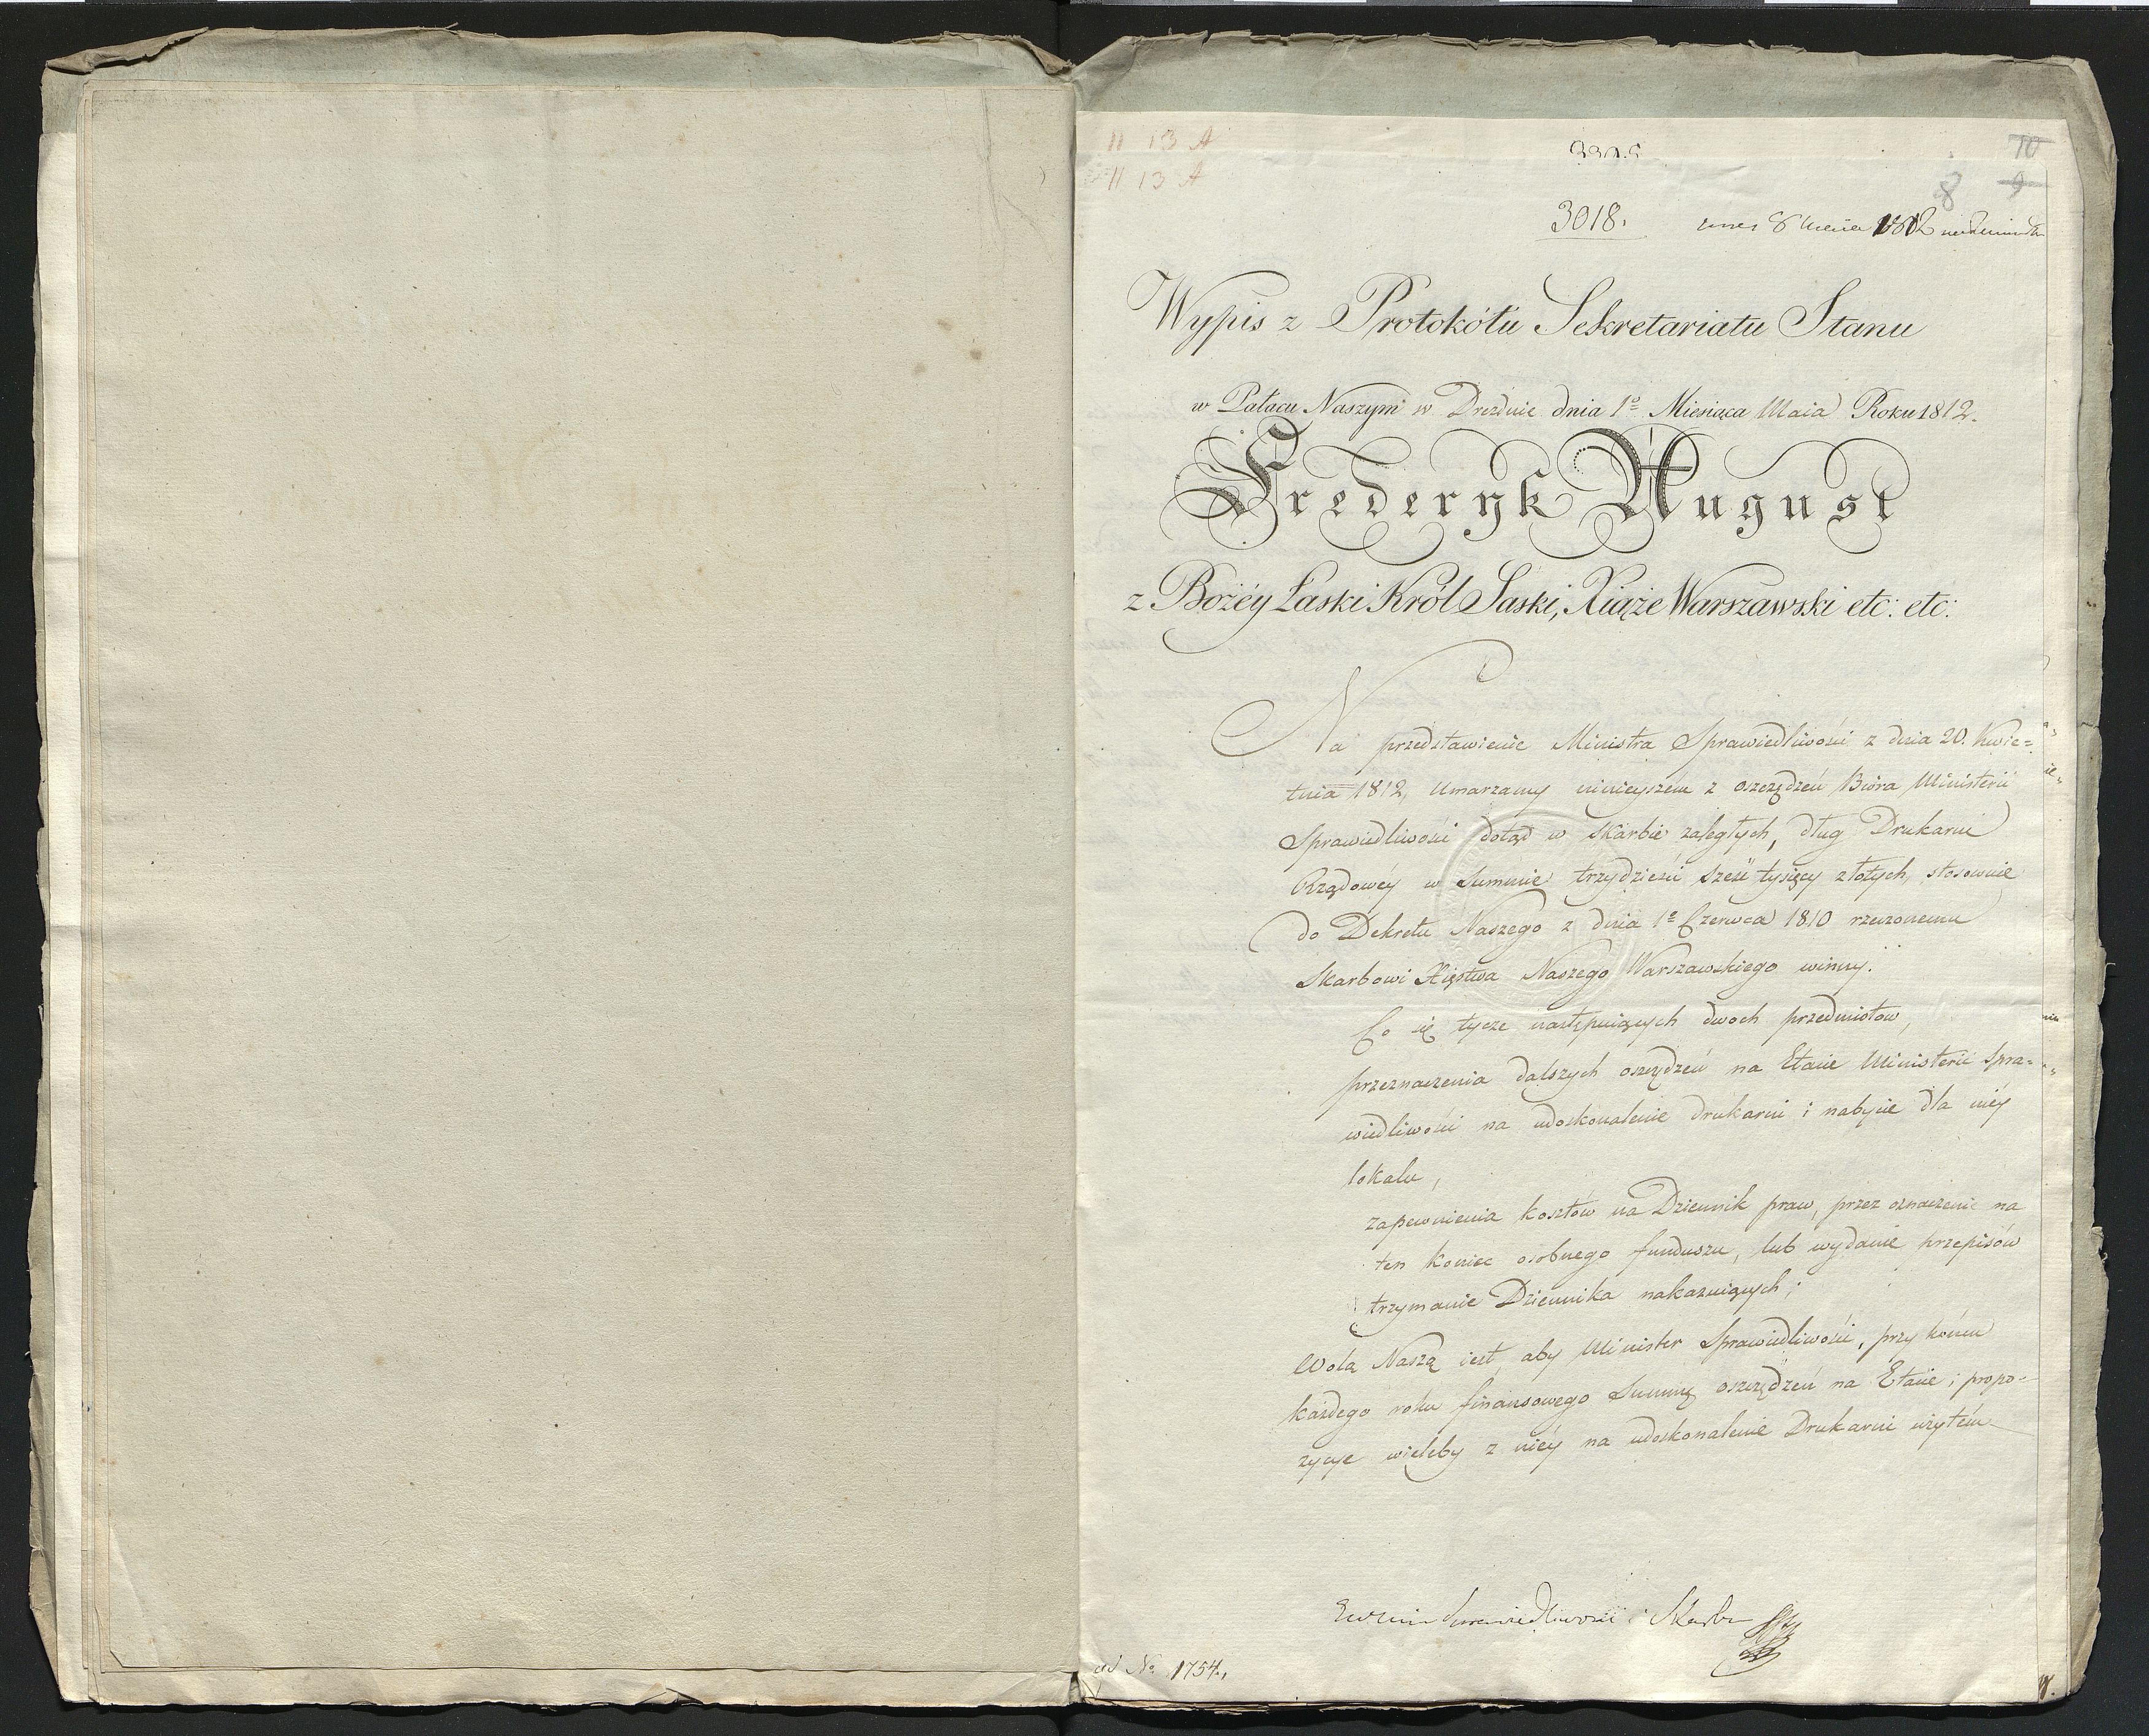 11 13 A
11 13 A
10
9
8
3018.
1812
Wypis z Protokółu Sekretariatu Stanu
w Pałacu Naszym w Dreźnie dnia 1º Miesiąca Maia Roku 1812.
Frederyk August
z Bożéy Łaski Król Saski, Xiąże Warszawski etc: etc:
Na przedstawienie Ministra Sprawiedliwości z dnia 20. Kwie=
tnia 1812, Umarzamy ninieyszém z oszczędzeń Bióra Ministerii
Sprawiedliwości dotąd w skarbie zaległych, dług Drukarni
Rządowéy w Summie trzydzieści sześć tysięcy złotych, stosownie
do Dekretu Naszego z dnia 1º Czerwca 1810 rzeczonemu
Skarbowi Xięstwa Naszego Warszawskiego winny.
Co się tycze następuiących dwoch przedmiotow,
przeznaczenia dalszych oszczędzeń na Etacie Ministerii Spra=
wiedliwości na udoskonalenie drukarni i nabycie dla niéy
lokalu,
zapewnienia kosztów na Dziennik praw, przez oznaczenie na
ten koniec osobnego funduszu, lub wydanie przepisów
trzymanie Dziennika nakazuiących;
Wolą Naszą iest, aby Minister Sprawiedliwości, przy końcu
każdego roku finansowego Summę oszczędzeń na Etacie i propo-
zycye wieleby z niéy na udoskonalenie Drukarni użytém
Sprawiedliwości i Skarbu
ad No 1754.